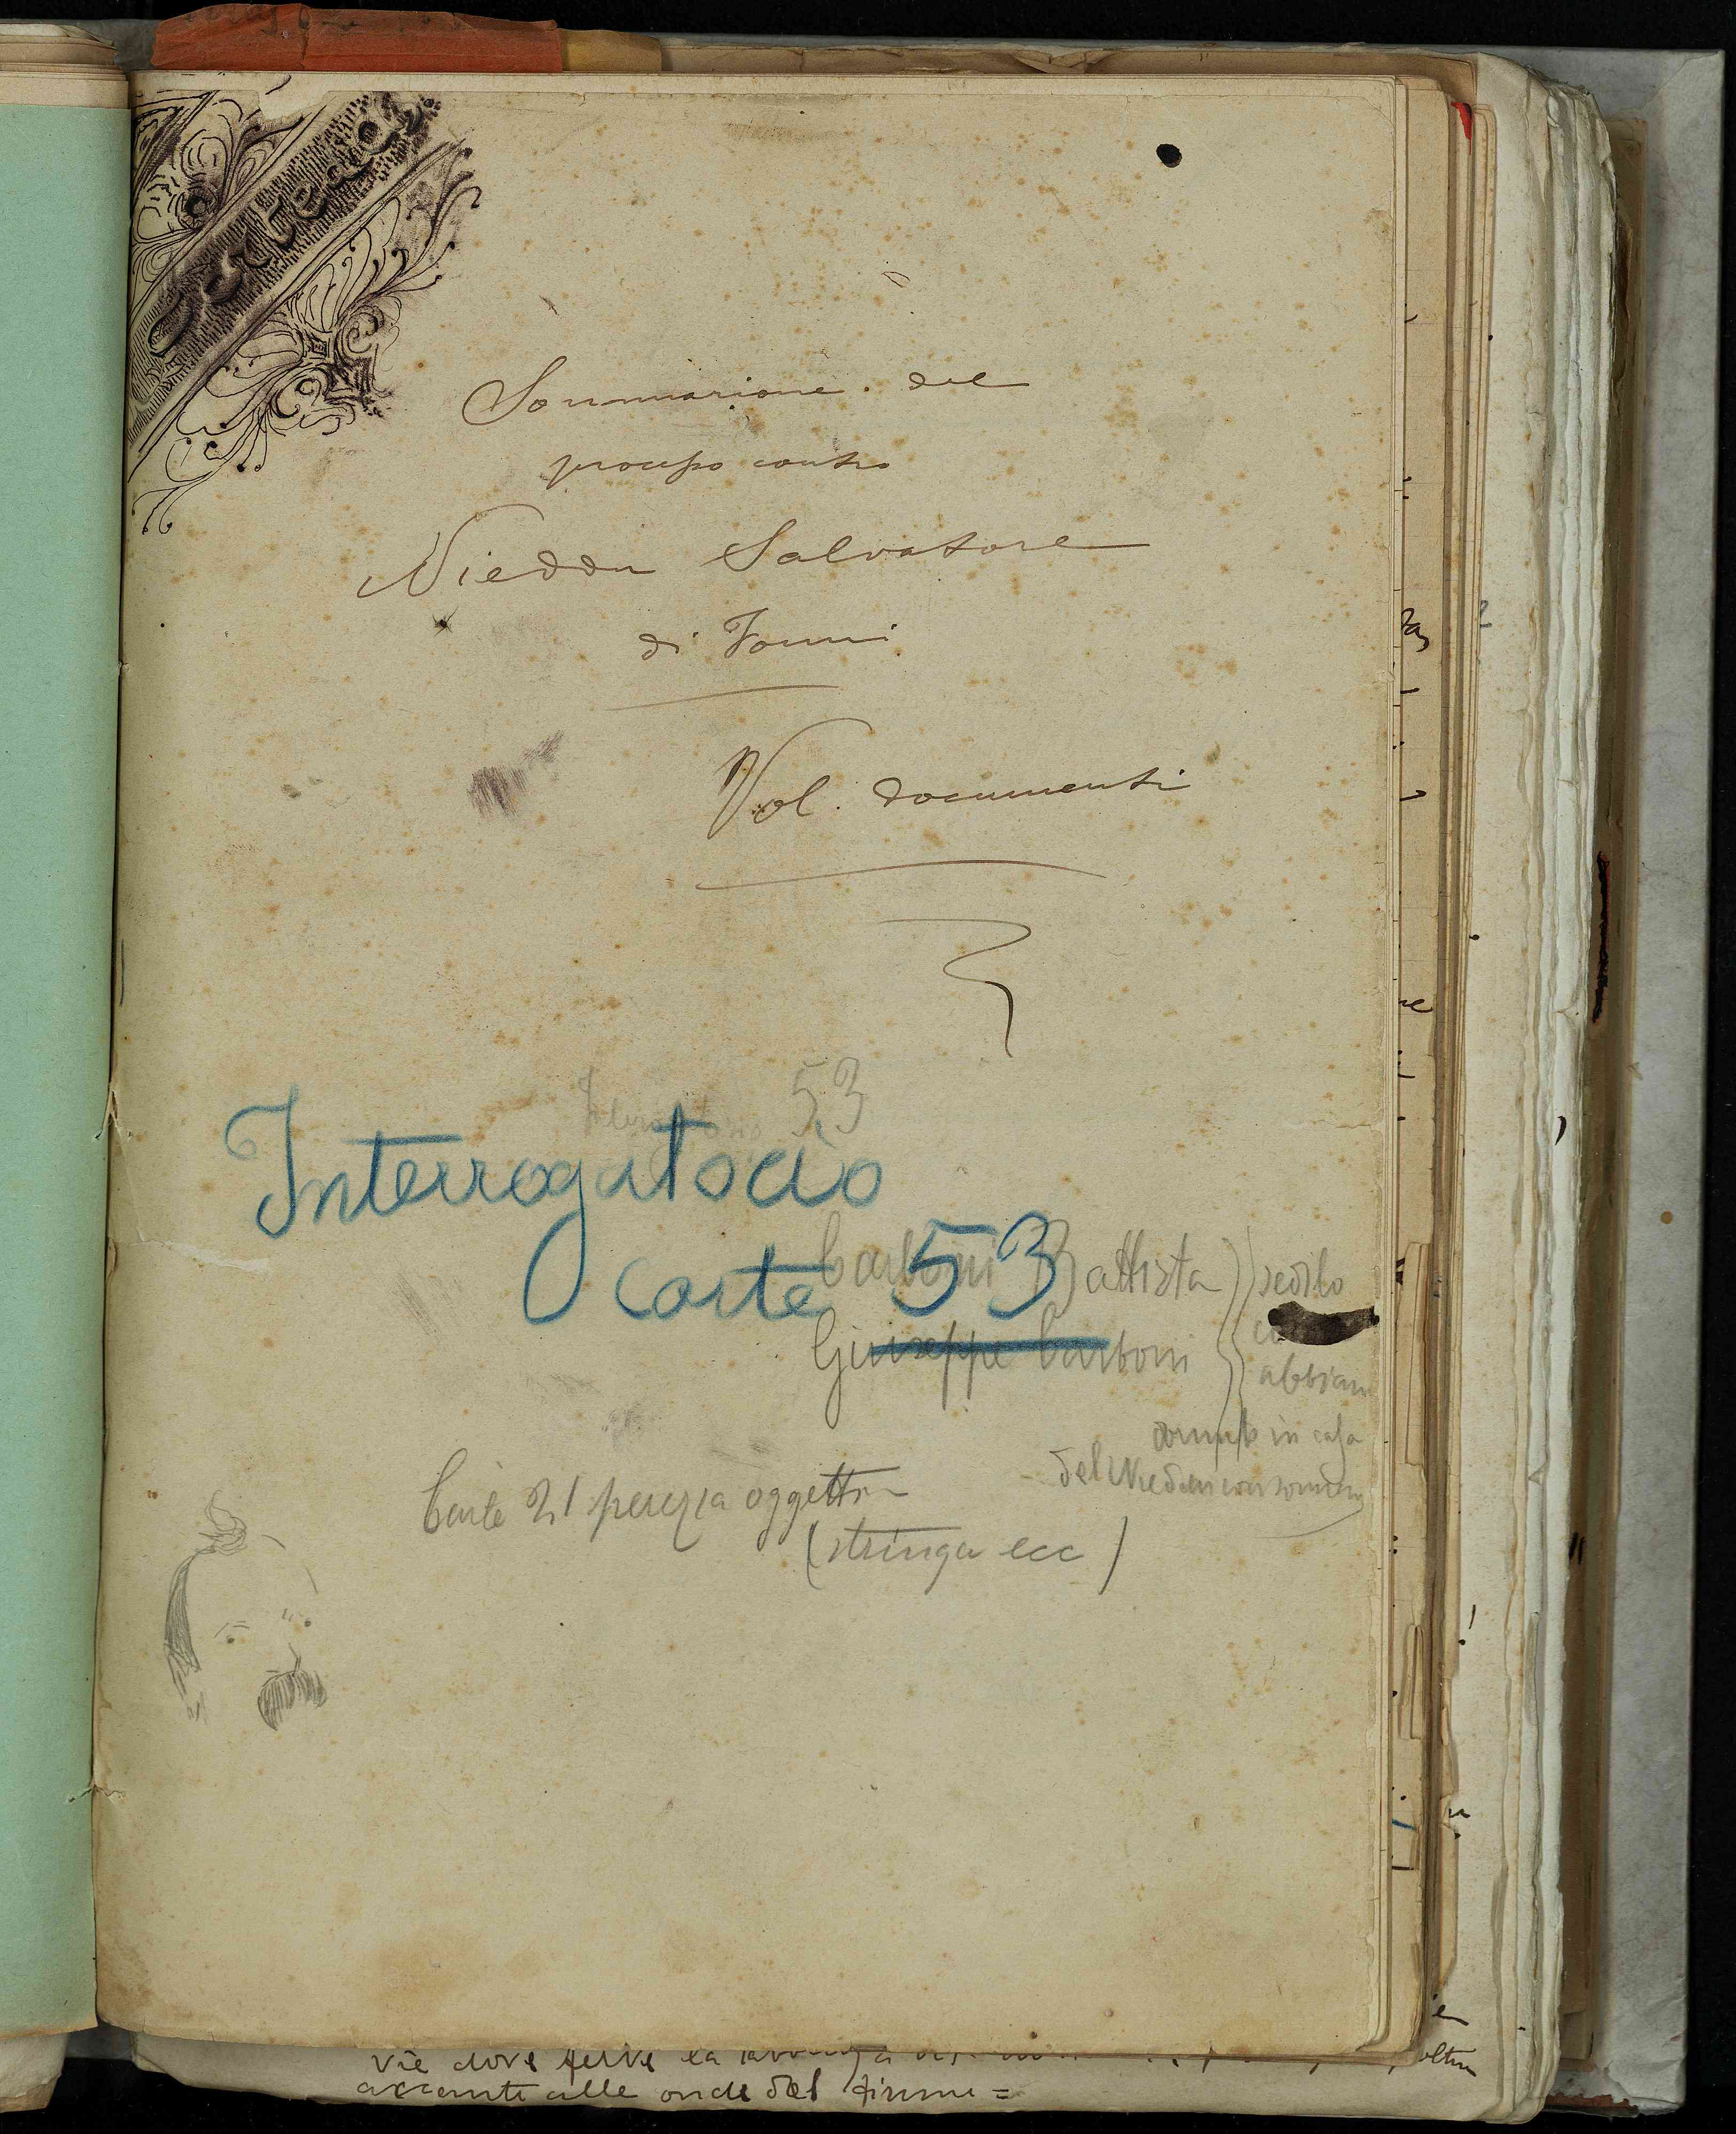 Sommarione del
processo contro
Nieddu Salvatore
di Fonni
Vol. documenti
53
Interrogatorio
carte 53
Carboni Battista
sedilo
Giuseppe Carboni
abbiam
in casa
del Nieddu con
Carte 21 perizia oggetto
(stringa ecc)
vie dove
alle onde del fiume =